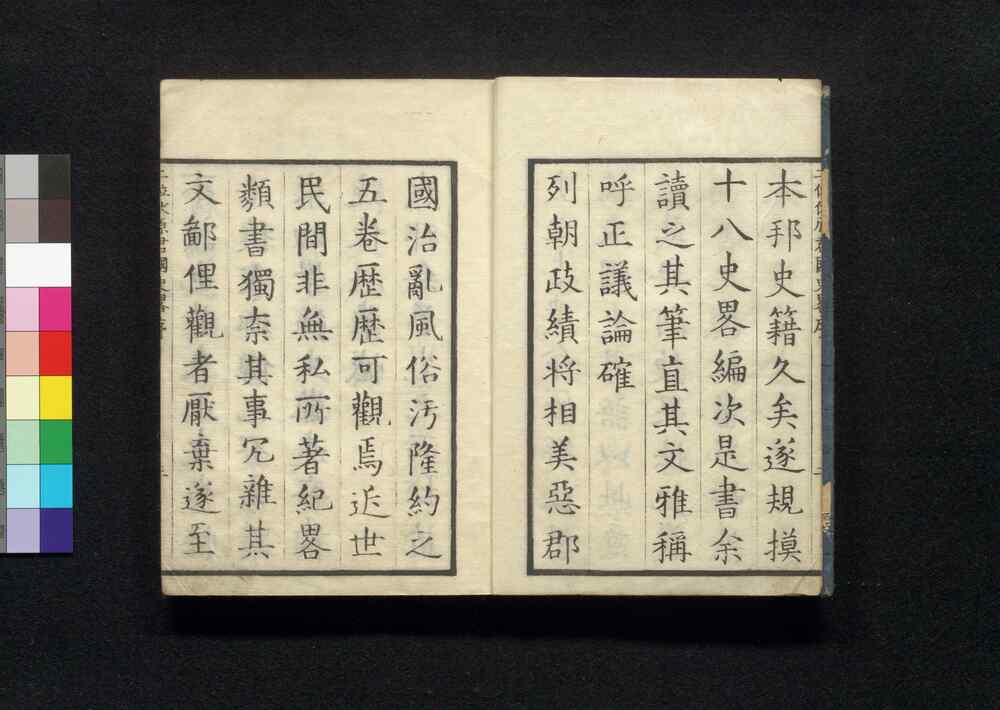 本邦史籍久矣遂規摸
十八史畧編次是書余
讀之其筆直其文雅稱
呼正議論確
列朝政績將相美惡郡
國治亂風俗汚隆約之
五卷歴歴可觀焉近世
民間非無私所著紀畧
類書獨柰其事冗雜其
文鄙俚觀者厭棄遂至